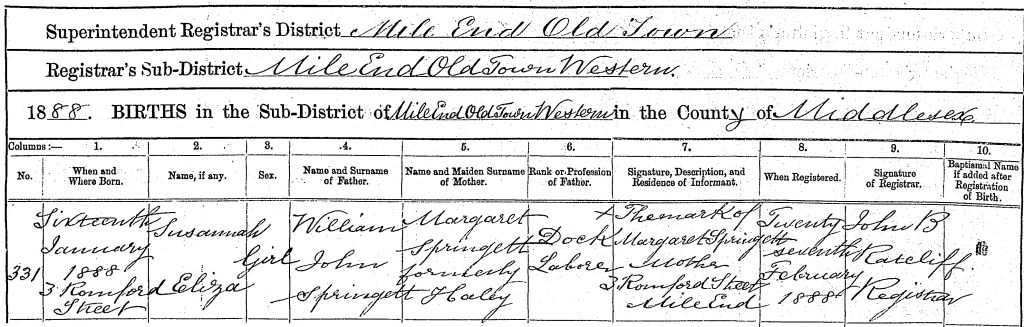 Superintendent Registrar's District Mile End Old Town
Registrar's Sub-District Mile End Old Town Western.
1888. BIRTHS in the Sub-District of Mile End Old Town Western in the County of Middlesex
Columns:— 1. 2. 3. 4. 5. 6. 7. 8. 9. 10.
No. When and Where Born. Name, if any. Sex. Name and Surname of Father. Name and Maiden Surname of Mother. Rank or Profession of Father. Signature, Description, and Residence of Informant. When Registered. Signature of Registrar. Baptismal Name if added after Registration of Birth.
331
Sixteenth
January
1888
3 Romford
Street
Susannah
Eliza
Girl
William
John
Springett
Margaret
Springett
formerly
Haley
Dock
Laborer
X The mark of
Margaret Springett
Mother
3 Romford Street
Mile End
Twenty
seventh
February
1888
John B
Ratcliff.
Registrar